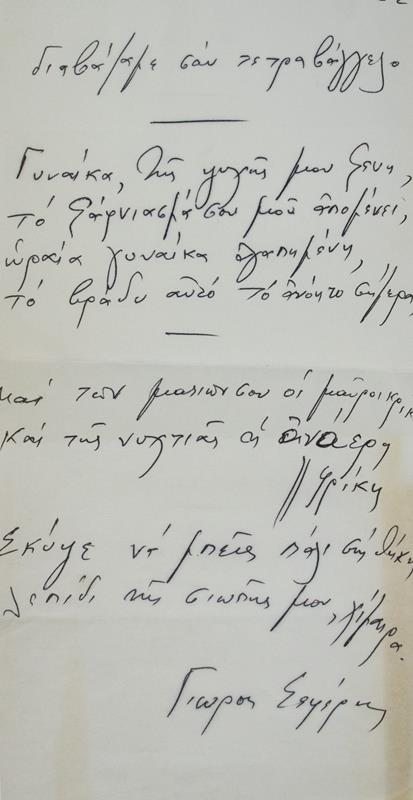 διαβάζαμε σάν τετραβάγγελο
Γυναίκα, τῆς ψυχῆς μου ξένη,
τό ξάφνιασμά σου μοῦ ἀπομένει,
ὡραία γυναίκα ἀγαπημένη,
τό βράδυ αὐτό τό ἀνόητο σήμερα,
καί τῶν ματιῶν σου οἱ μαῦροι κρίκοι
καί τῆς νυχτιᾶς ἡ ἀνάερη
φρίκη
Σκύψε νά μπεῖς πάλι στή θήκη
λεπίδι τῆς σιωπῆς μου, χίμαιρα.
Γιώργος Σεφέρης